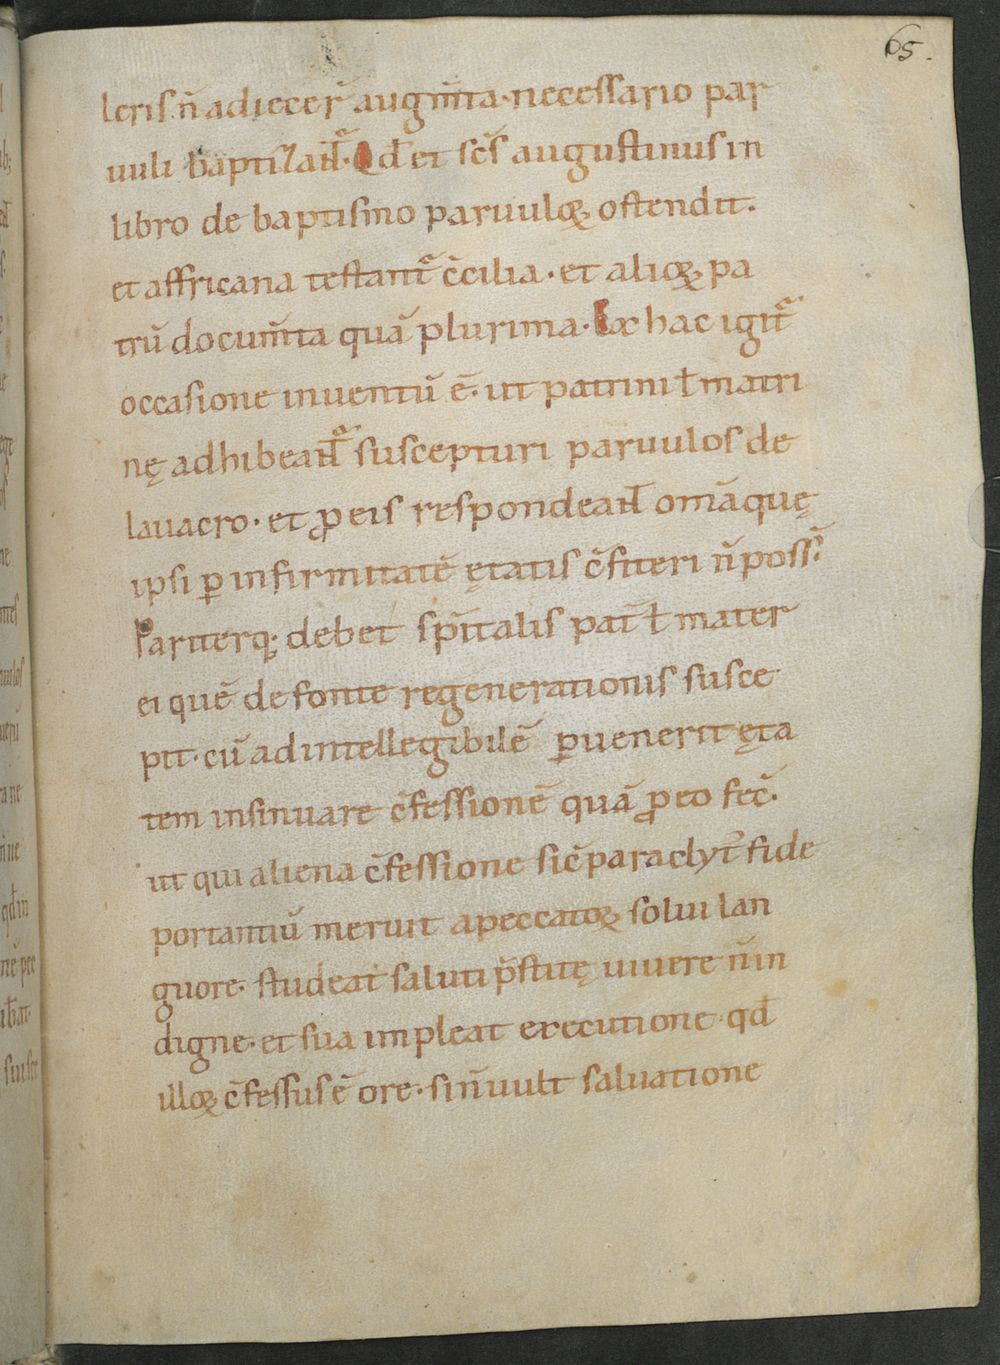 65.
leris. n̄ adiecer̄ augm̅ta· necessario par
uuli baptizant᷑· Qd̄ et sc̄s augustinus in
libro de baptismo paruuloꝝ ostendit.
et affricana testant᷑ c̄cilia· et alioꝝ pa
trū documt̄a quā plurima· Ex hac igit᷑
occasione inventū ē· ut patrini ł matri
nę adhibeant᷑ suscepturi paruulos de
lavacro· et ꝓ eis respondeant omāquę
ipsi ꝑ infirmitatē ętatis c̄fiteri n̄ poss̄·
Pariterq; debet sp̄italis pat̄ ł mater
ei quē de fonte regenerationis susce
pit· cū ad intellegibilē ꝑuenerit ęta
tem insinuare c̄fessionē quā ꝓ eo fec̄·
ut qui aliena c̄fessione sic̄ paraclyt̄ fide
portantiū meruit a peccatoꝝ solui lan
guore· studeat saluti p̄stitę uiuere n̄ in
digne· et sua impleat executione· qd̄
illoꝝ c̄fessus ē ore· si n̄ uult saluatione